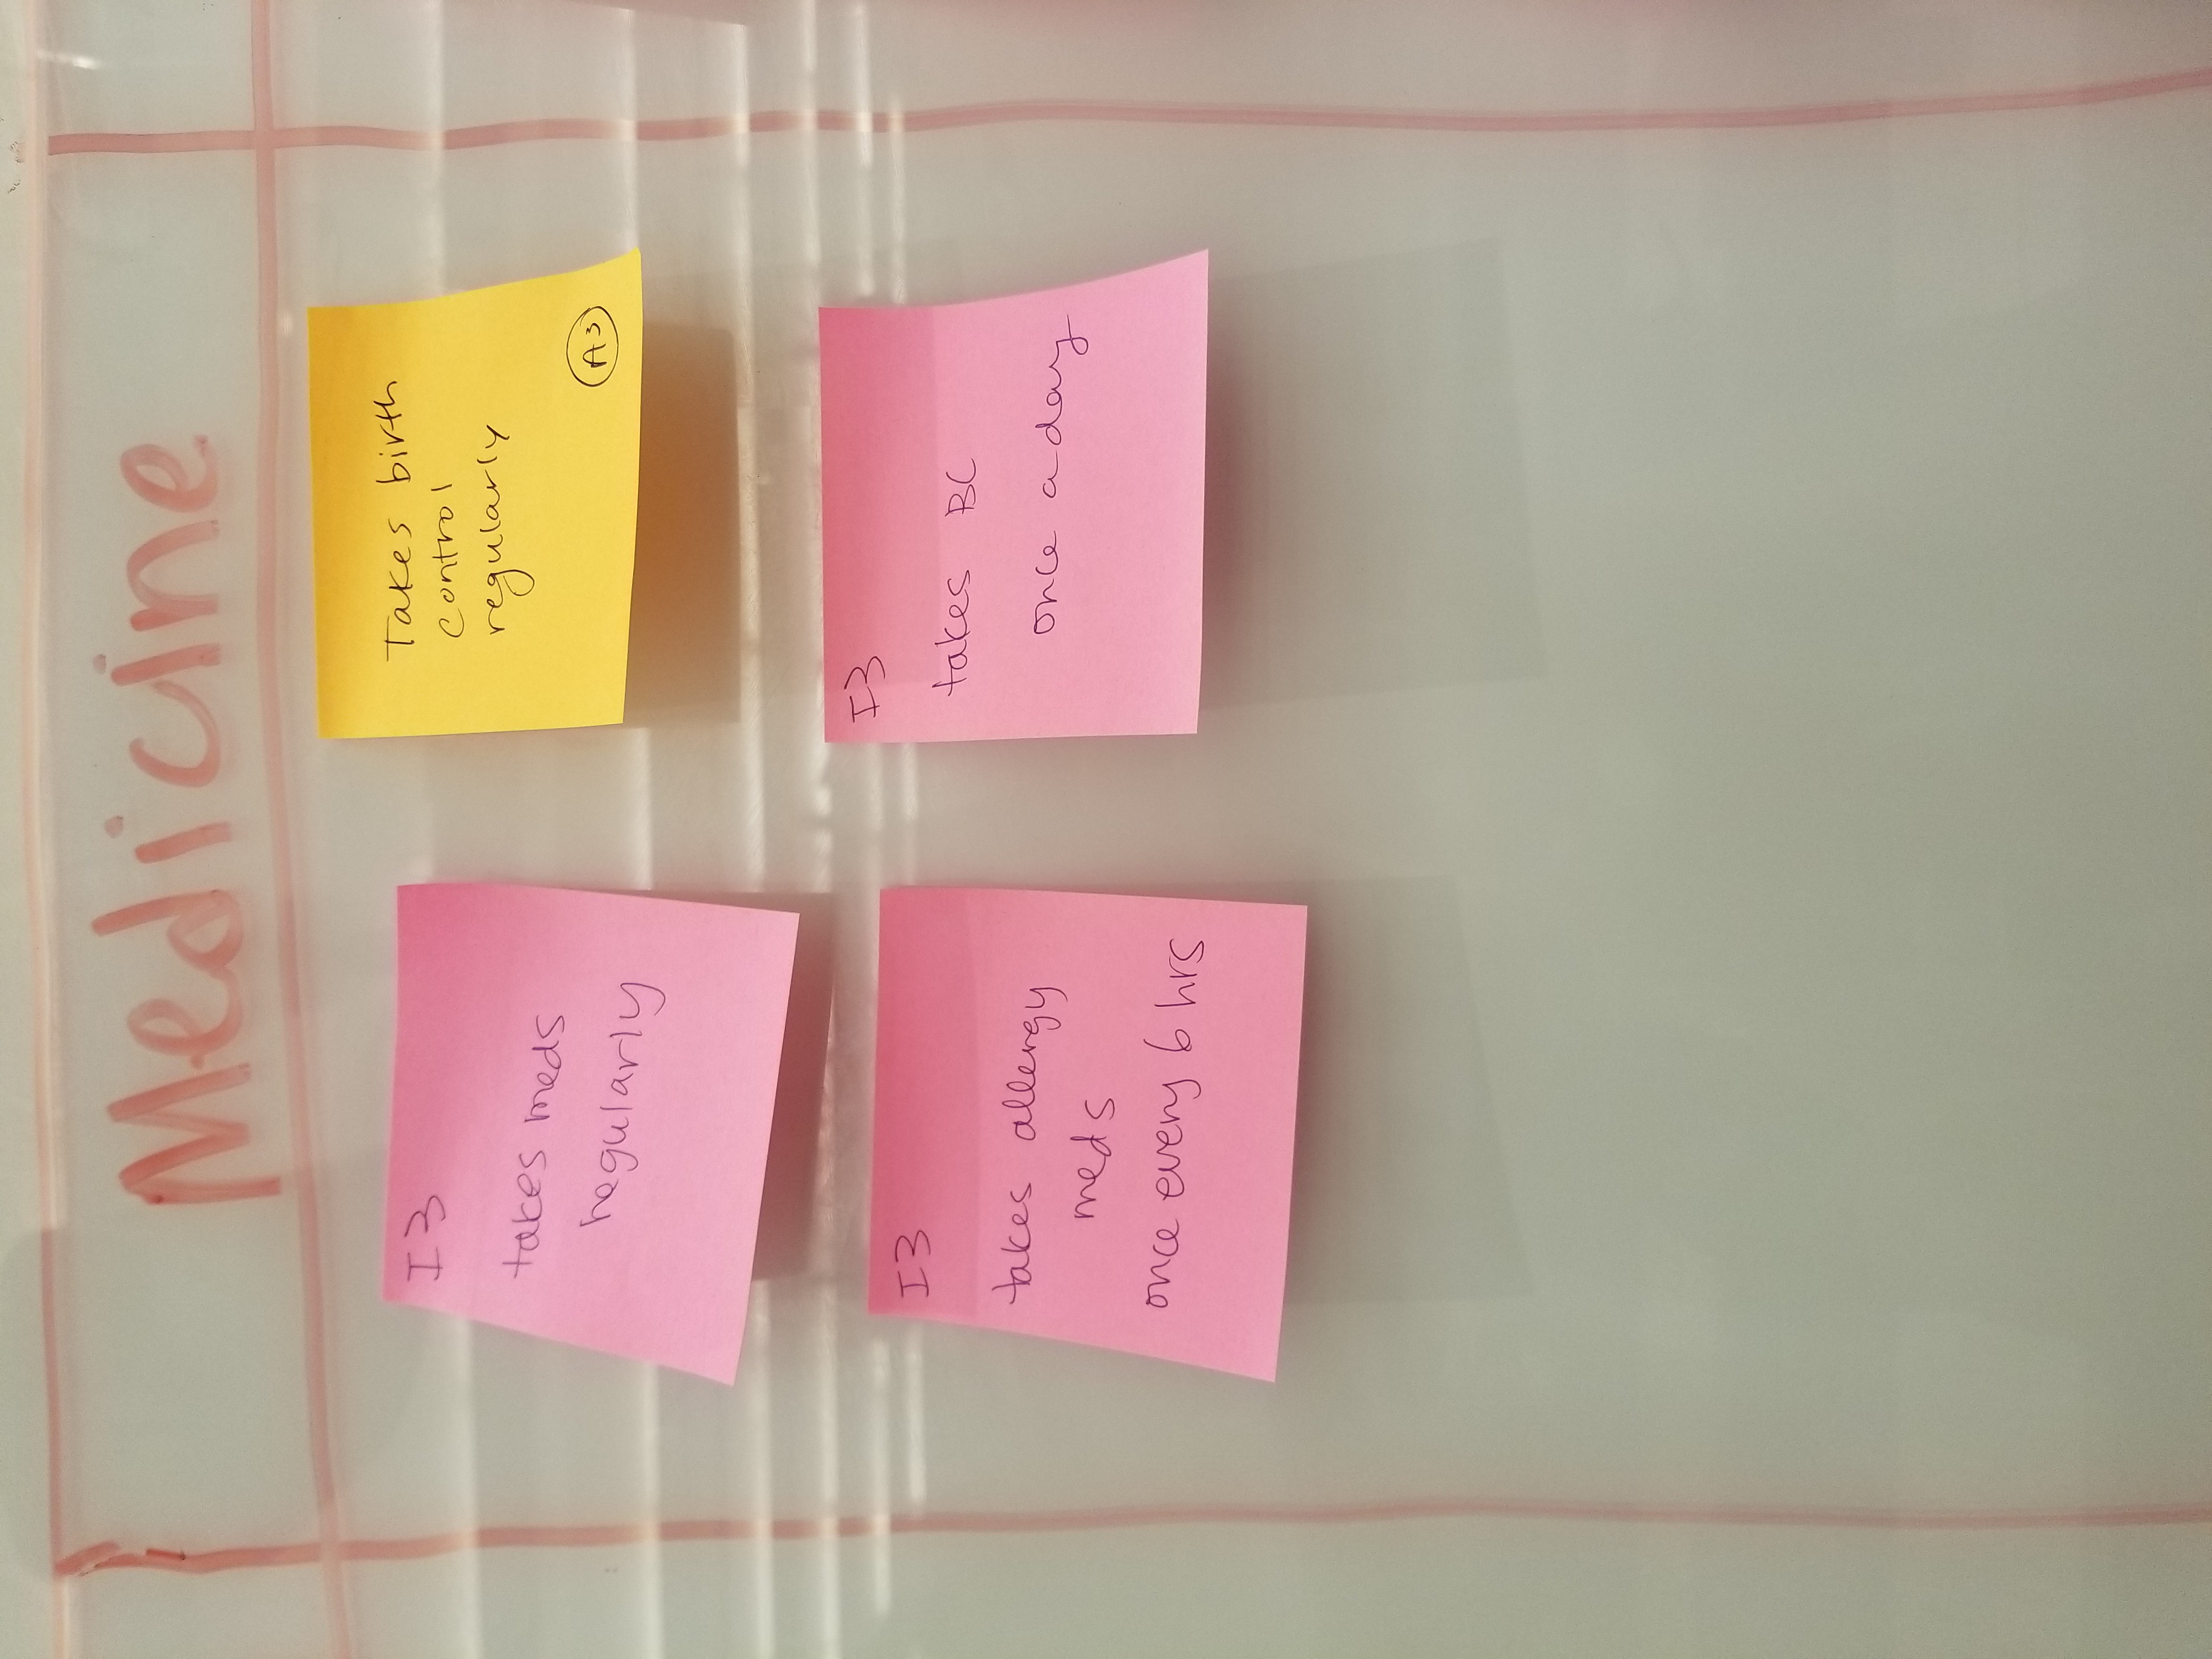 Medicine
I3
takes meds
regularly
Takes birth
control
regularly
A3
I3
takes allergy
meds
once every 6 hrs
I3
takes BC
once a day